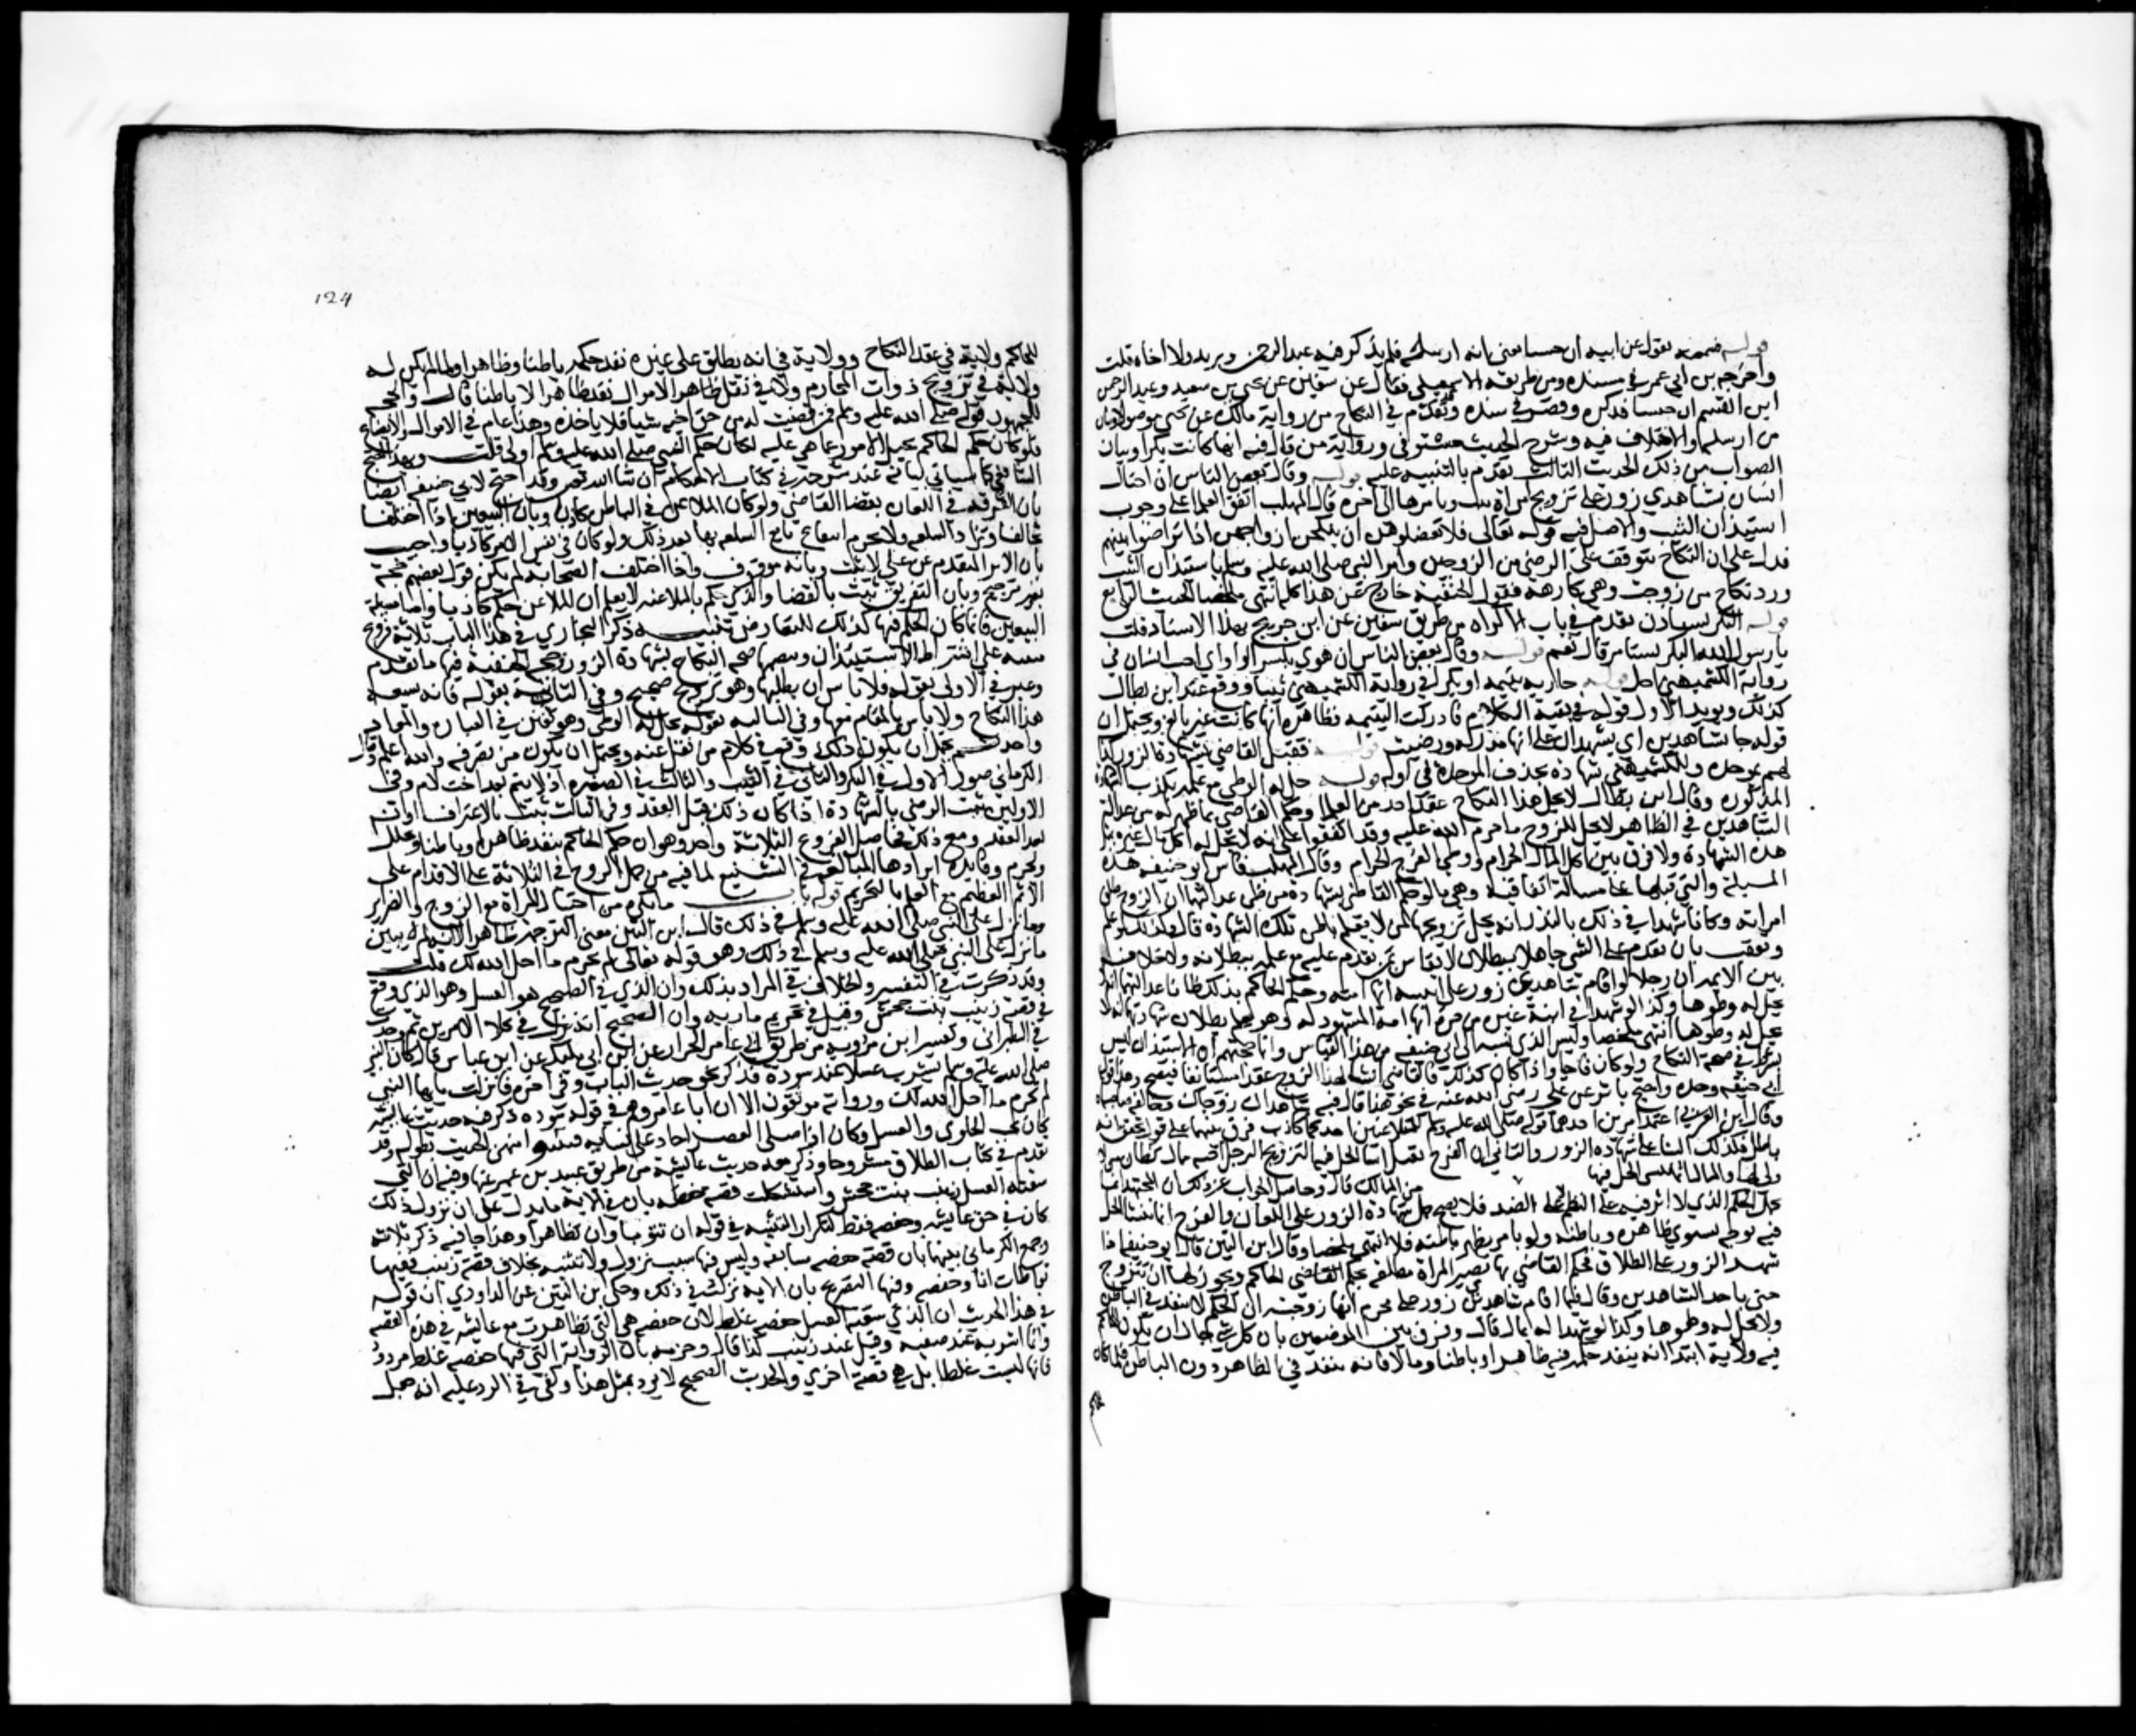 قوله فسمعته يقول عن ابيه ان خنسا يعني انه ارسله فلم يذكر فيه عبد الرحمن بن يزيد ولا اخاه قلت
واخرجه بن ابي عمر في مسنده ومن طريقه الاسمعيلي فقال عن سفين عن يحيى بن سعيد وعبد الرحمن
ابن القسم ان خنسا فذكره وقصر في سنده وتقدم في النكاح من رواية مالك عن يحيى موصولا وبيان
من ارسله والاختلاف فيه وشرح الحديث مستوفى ورواية من قال فيه انها كانت بكرا وبيان
الصواب من ذلك الحديث الثالث تقدم بالتنبيه عليه قوله وقال بعض الناس ان احتال
انسان بشاهدي زور على تزويج امراة ثيب بامرها الى اخره قال المهلب اتفق العلما على وجوب
استيذان الثيب والاصل فيه قوله تعالى فلا تعضلوهن ان ينكحن ازواجهن اذا تراضوا بينهم
فدل على ان النكاح يتوقف على الرضى من الزوجين وامر النبي صلى الله عليه وسلم باستيذان الثيب
ورد نكاح من زوجت وهي كارهة فقول الحنفية خارج عن هذا كله انتهى ملخصا الحديث الرابع
قوله البكر تستاذن تقدم في باب الاكراه من طريق سفين عن ابن جريج بهذا الاسناد قلت
يا رسول الله البكر تستامر قال نعم قوله وقال بعض الناس ان هوي بكسر الواو اي احب انسان في
رواية الكشميهني رجل قوله جارية يتيمه او بكرا في رواية الكشميهني ثيبا ووقع عند ابن بطال
كذلك ويويد الاول قوله في بقية الكلام فادركت اليتيمه فظاهره انها كانت غير بالغ ويحتمل ان
قوله جا بشاهدين اي يشهدان على انها مدركه ورضيت قوله فقبل القاضي بشهادة الزور كذا
لهم بموحده وللكشميهني شهادة بحذف الموحدة في اوله قوله حل له الوطي مع علمه بكذب الشهادة
المذكوره وقال ابن بطال لا يحل هذا النكاح عند احد من العلما وحكم القاضي بما ظهر له من عدالة
الشاهدين في الظاهر لا يحل للزوج ما حرم الله عليه وقد اتفقوا على انه لا يحل له اكل مال غيره بمثل
هذه الشهادة ولا فرق بين اكل المال الحرام ووطي الفرج الحرام وقال المهلب قاس ابو حنيفه هذه
المسيلة والتي قبلها على مسالة اتفاقية وهي ما لو حكم القاضي بشهادة من ظن عدالتهما ان الزوج طلق
امراته وكانا شهدا في ذلك بالزور انه يحل تزويجها لمن لا يعلم باطن تلك الشهادة قال وكذلك لو علم
وتعقب بان الذي يقدم على الشي جاهلا ببطلانه لا يقاس بمن يقدم عليه مع علمه ببطلانه ولا خلاف
بين الايمه ان رجلا لو اقام شاهدي زور على ابنته انها امته وحكم الحاكم بذلك ظانا عدالتهما انه لا
يحل له وطوها وكذا لو شهدا في ابنة غيره من حرة انها امة المشهود له وهو يعلم بطلان شهادتهما لا
يحل له وطوها انتهى ملخصا وليس الذي نسبه الى ابي حنيفه من هذا القياس وانما حجتهم ان الاستيذان ليس
بشرط في صحة النكاح ولو كان واجبا واذا كان كذلك فالقاضي انشا لهذا الزوج عقدا مستانفا فيصح وهذا قول
ابي حنيفه وحده واحتج باثر عن علي رضي الله عنه في نحو هذا قال فيه شاهداك زوجاك وخالفه صاحباه
وقال ابن العربي اعتمد امرين احدهما قوله صلى الله عليه وسلم للمتلاعنين احدكما كاذب ففرق بينهما على قول يحقق انه
باطل فكذلك البنا على شهادة الزور والثاني ان الفرج يقبل انشا الحل فيما لتزويج الرجل ابنته
يحل الحكم الذي لا اثر فيه على اللفظ على الضد فلا يصح حمل شهادة الزور على اللعان والفرج انما ينشا الحل
فيه بوجه يستوي ظاهره وباطنه ولو بامر يظهر باطنه فلا انتهى ملخصا وقال ابن التين قال ابو حنيفه اذا
شهدا بالزور على الطلاق فحكم القاضي بها تصير المراة مطلقه بحكم القاضي الحاكم ويجوز لها ان تتزوج
حتى باحد الشاهدين وقال فيما اقام شاهدي زور على محرم انها زوجته ان الحكم لا ينفذ في الباطن
ولا يحل له وطوها وكذا لو شهدا له بمال قال وفرق بين الموضعين بان كل شي جاز ان يكون للحاكم
فيه ولاية ابتدا انه ينفذ حكمه فيه ظاهرا وباطنا وما لا فانه ينفذ في الظاهر دون الباطن فلما كان
124
للحاكم ولاية في عقد النكاح وولاية في انه يطلق على غيره نفذ حكمه باطنا وظاهرا ولما لم يكن له
ولاية في تزويج ذوات المحارم ولا في نقل ظاهر الاموال نفذ ظاهرا لا باطنا قال والحجة
للجمهور قوله صلى الله عليه وسلم فمن قضيت له من حق اخيه شيا فلا ياخذه وهذا عام في الاموال والابضاع
فلو كان حكم الحاكم يحيل الامور عما هي عليه لكان حكم النبي صلى الله عليه وسلم اولى قلت وبهذا احتج
الشافعي كما سياتي بيانه عند شرحه في كتاب الاحكام ان شا الله تعالى وقد احتج لابي حنيفه ايضا
بان الفرقة في اللعان بقضا القاضي ولو كان الملاعن في الباطن كاذبا وبان البيعين اذا اختلفا
تحالفا وترادا السلعه ولا يحرم انتفاع بايع السلعه بها بعد ذلك ولو كان في نفس الامر كاذبا واجيب
بان الاثر المقدم عن علي لا يثبت وبانه موقوف واذا اختلف الصحابة لم يكن قول بعضهم حجة
بغير ترجيح وبان التفريق ثبت بالقضا والذي حكم بالملاعنه لا يعلم ان الملاعن حلف كاذبا واما مسيلة
البيعين فانما كان الحكم فيها كذلك للتعارض تنبيـــه ذكر البخاري في هذا الباب ثلاثة فروع
مبنيه على اشتراط الاستيذان وبعضها صحة النكاح بشهادة الزور وحجة الحنفية فيها ما تقدم
وعبر في الاولى بقوله فلا باس ان يطاها وهو تزويج صحيح وفي الثانية بقوله فانه يسعه
هذا النكاح ولا باس بالمقام معها وفي الثالثه بقوله حل له الوطي وهو تفنن في العبارة والمفاد
واحد ثم يحتمل ان يكون ذلك وقع في كلام من نقل عنه ويحتمل ان يكون من تصرفه والله اعلم وقال
الكرماني صور الاول في البكر والثاني في الثيب والثالث في الصغيره اذ لا يتم بعد احتلام وفي
الاولين ثبت الرضى بالشهادة اذا كان ذلك قبل العقد وفي الثالث ثبت بالاعتراف او انه
بعد العقد ومع ذلك فحاصل الفروع الثلاثة واحد وهو ان حكم الحاكم ينفذ ظاهرا وباطنا ويحلل
ويحرم وفايدة ايرادها المبالغه في التشنيع لما فيه من حمل الزوج في الثلاثة على الاقدام على
الاثم العظيم مع العلم بالتحريم قوله باب ما يكره من احتيال المراة مع الزوج والضراير
وما نزل على النبي صلى الله عليه وسلم في ذلك قال ابن التين معنى الترجمة ظاهر الا انه لم يبين
ما نزل على النبي صلى الله عليه وسلم في ذلك وهو قوله تعالى لم تحرم ما احل الله لك قلت
وقد ذكرت في التفسير والخلاف في المراد بذلك وان الذي في الصحيح هو العسل وهو الذي وقع
في قصة زينب بنت جحش وقيل في تحريم مارية وان الصحيح انه نزل في كلا الامرين ثم وجدت
في الطبراني وتفسير ابن مردويه من طريق ابي عامر الخزاز عن ابن ابي مليكة عن ابن عباس قال كان النبي
صلى الله عليه وسلم يشرب عسلا عند سودة فذكر نحو حديث الباب وفي اخره فانزلت يا ايها النبي
لم تحرم ما احل الله لك ورواته موثقون الا ان ابا عامر وهم في قوله سوده ذكر فيه حديث عايشه
كان يحب الحلوى والعسل وكان اذا صلى العصر اجاز على نسايه فيدنو منهن الحديث بطوله وقد
تقدم في كتاب الطلاق مشروحا وذكر معه حديث عايشة من طريق عبيد بن عمير عنها وفيه ان التي
سقته العسل زينب بنت جحش واستشكلت قصة حفصه بان في الاية ما يدل على ان نزول ذلك
كان في حق عايشه وحفصه فقط لتكرار التثنيه في قوله ان تتوبا وان تظاهرا وهنا جا فيه ذكر ثلاثه
وجمع الكرماني بينهما بان قصة حفصه سابقه وليس فيها سبب نزول ولا تثنيه بخلاف قصة زينب ففيها
تواطات انا وحفصه وفيها التصريح بان الايه نزلت في ذلك وحكى ابن التين عن الداودي ان قوله
في هذا الحديث ان الذي سقته العسل حفصه غلط لان حفصه هي التي تظاهرت مع عايشه في هذه القصه
وانما شربه عند صفيه وقيل عند زينب كذا قال وجزمه بان الرواية التي فيها حفصه غلط مردود
فانها ليست غلطا بل هي قصة اخرى والحديث الصحيح لا يرد بمثل هذا وكفى في الرد عليه انه جعل